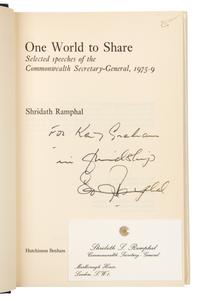 One World to Share
Selected speeches of the
Commonwealth Secretary-General, 1975-9
Shridath Ramphal
For Kay Graham
in friendship
Hutchinson Benham
Shridath S. Ramphal
Commonwealth Secretary-General
Marlborough House,
London, S.W.1.